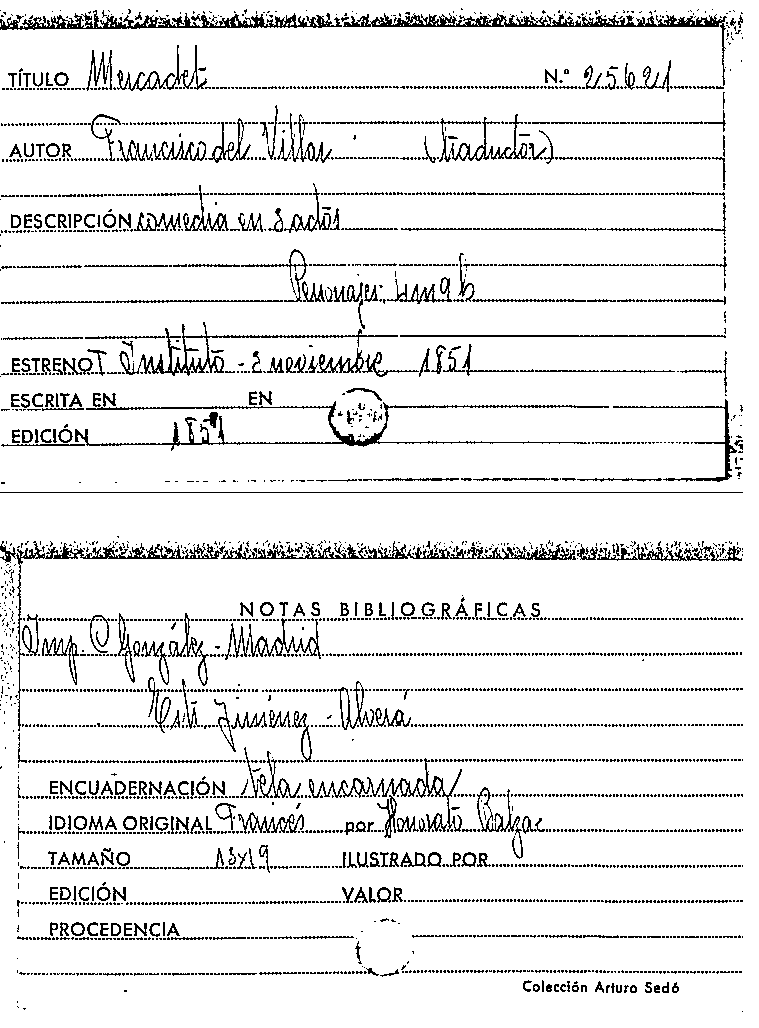 TÍTULO Mercadet N.º 25621
AUTOR Francisco del Villar (traductor)
DESCRIPCIÓN comedia en 3 actos
Personajes. 4m 9h
ESTRENO T Instituto - 2 noviembre 1851
ESCRITA EN EN
EDICIÓN 1851
NOTAS BIBLIOGRÁFICAS
Imp. C González - Madrid
Est. Jiménez - Alverá
ENCUADERNACIÓN tela encarnada
IDIOMA ORIGINAL Francés por Honorato Balzac
TAMAÑO 13x19 ILUSTRADO POR
EDICIÓN VALOR
PROCEDENCIA
Colección Arturo Sedó